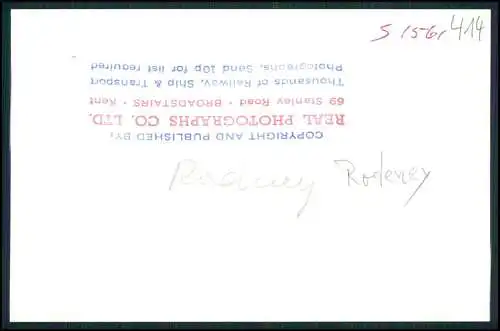 S 1561 414
COPYRIGHT AND PUBLISHED BY:
REAL PHOTOGRAPHS CO. LTD.
69 Stanley Road · BROADSTAIRS · Kent
Thousands of Railway, Ship & Transport
Photographs, Send 10p for list required
Rodney Rodeney